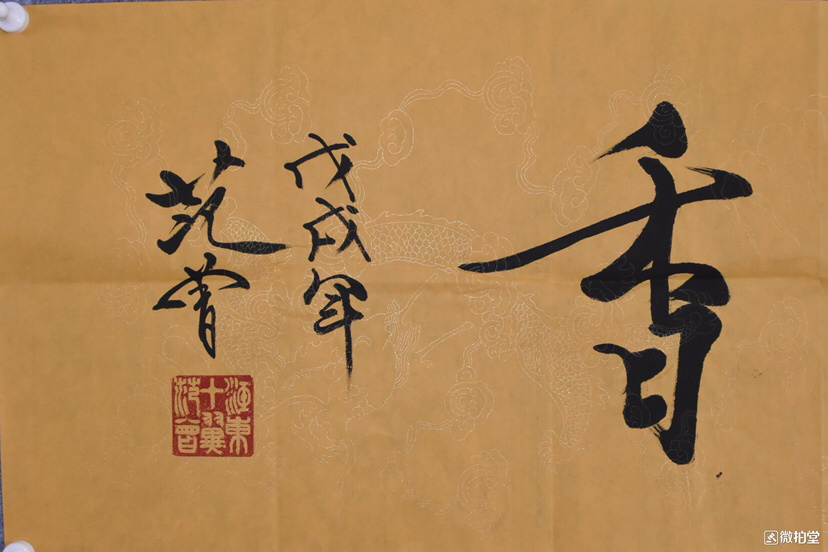 香
戊戌年
范曾
江東
十翼
范曾
微拍堂